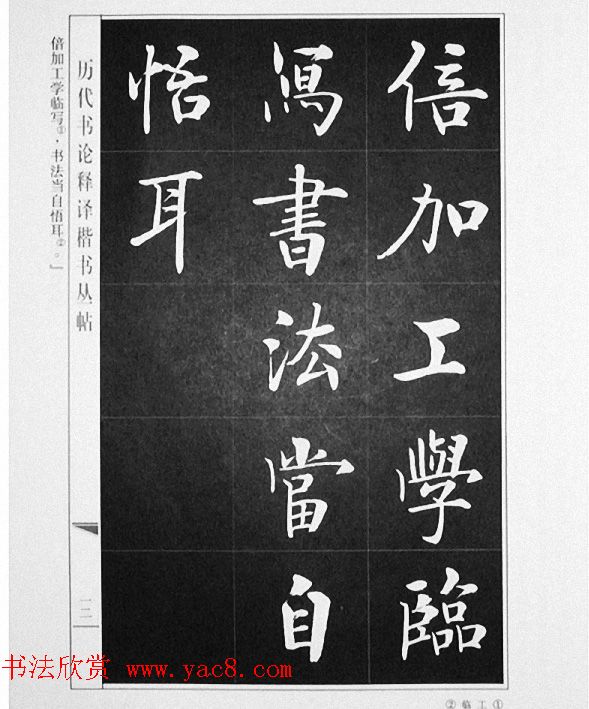 倍加工學臨
寫書法當自
悟耳
历代书论释译楷书丛帖
倍加工学临写①，书法当自悟耳②。」
三
书法欣赏 www.yac8.com
①工临②